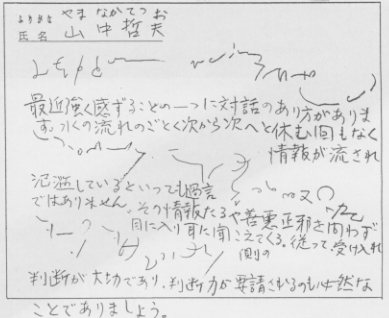 ふりがな やまなかてつお
氏名 山中哲夫
最近強く感ずることの一つに対話のあり方がありま
す。水の流れのごとく次から次へと休む間もなく
情報が流され
氾濫しているといっても過言
ではありません。その情報たるや善悪正邪を問わず
目に入り耳に聞こえてくる。従って、受け入れ
側の
判断が大切であり、判断力が要請されるのも必然な
ことでありましょう。